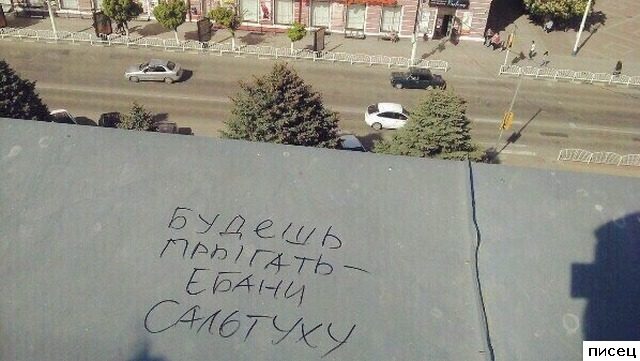 БУДЕШЬ
ПРЫГАТЬ –
ЕБАНИ
САЛЬТУХУ
писец